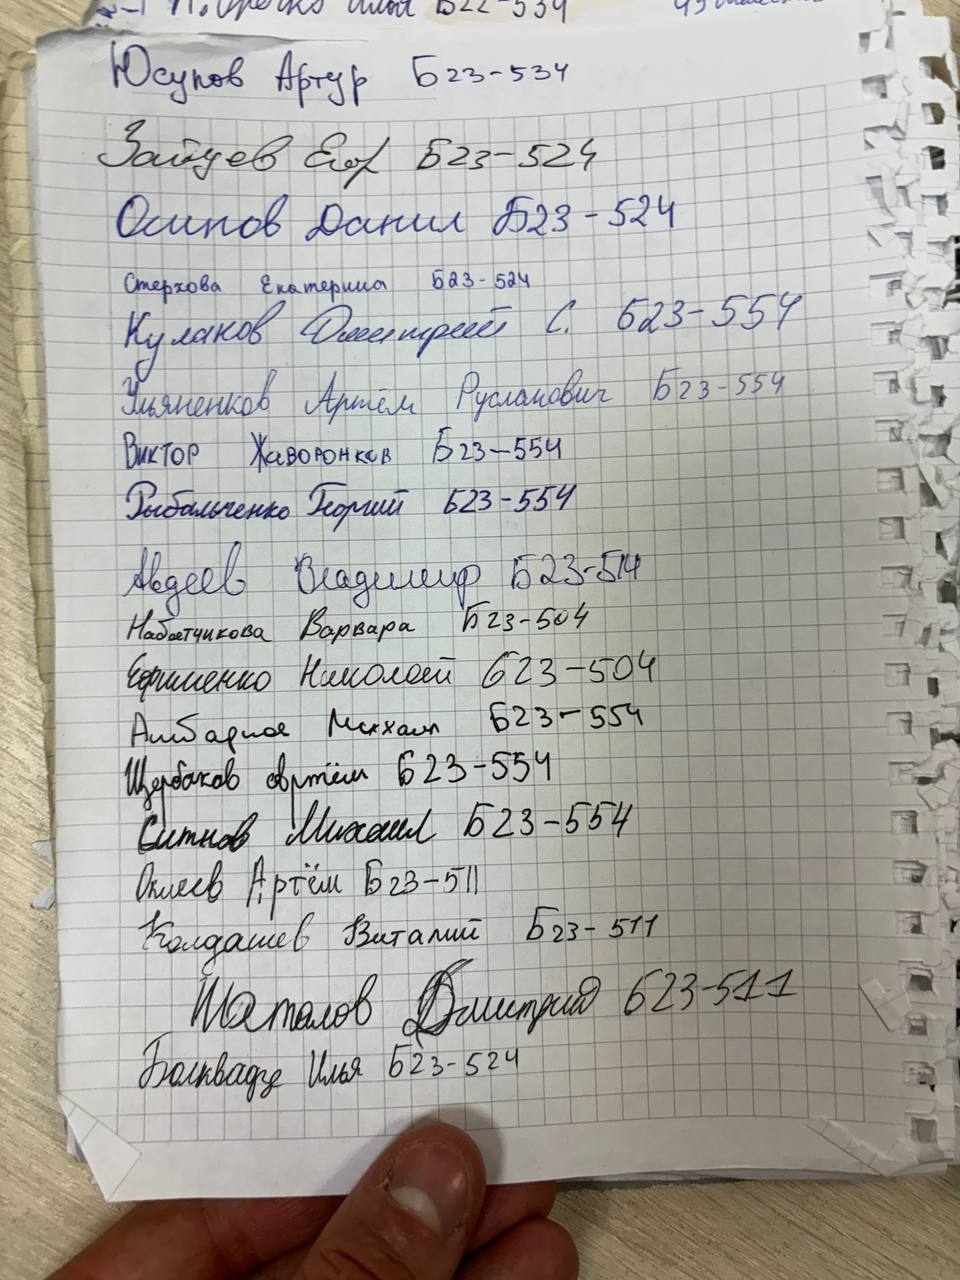 Илья Б22-534
Юсупов Артур Б23-534
Зайцев Егор Б23-524
Осипов Данил Б23-524
Стерхова Екатерина Б23-524
Кулаков Дмитрий С. Б23-554
Ульяненков Артём Русланович Б23-554
Виктор Жаворонков Б23-554
Рыбальченко Георгий Б23-554
Авдеев Владимир Б23-514
Набатчикова Варвара Б23-504
Ефименко Николай Б23-504
Михаил Б23-554
Щербаков Артём Б23-554
Ситнов Михаил Б23-554
Артём Б23-511
Колдашев Виталий Б23-511
Шаталов Дмитрий Б23-511
Болквадзе Илья Б23-524